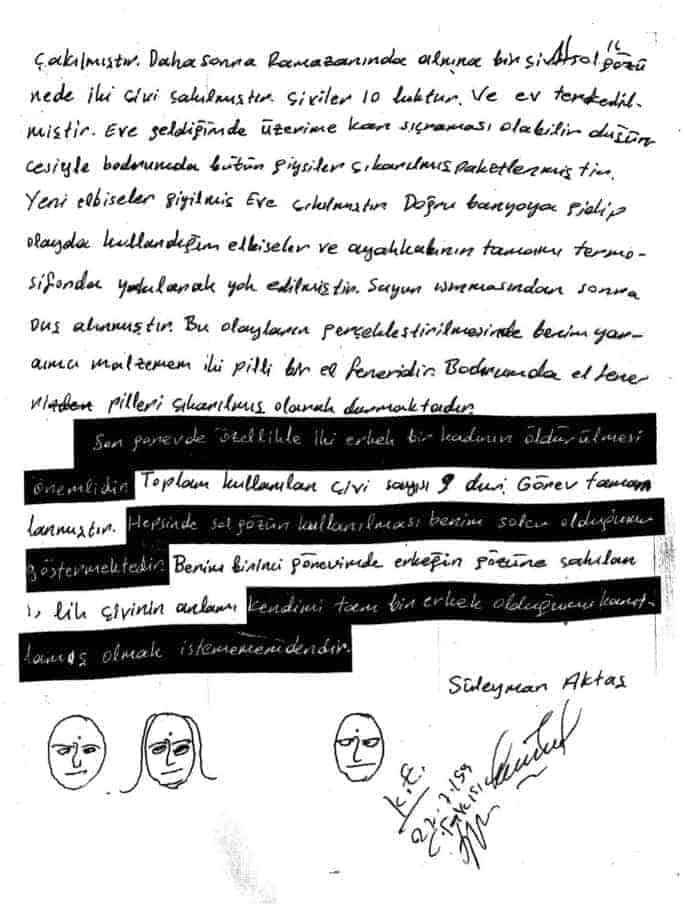 16
çakılmıştır. Daha sonra Ramazanında alnına bir çivi sol gözü
nede iki çivi çakılmıştır. Çiviler 10 luktur. Ve ev terkedil-
miştir. Eve geldiğimde üzerime kan sıçraması olabilir düşün
cesiyle bodrumda bütün giysiler çıkarılmış paketlenmiştir.
Yeni elbiseler giyilmiş Eve çıkılmıştır Doğru banyoya gidip
olayda kullandığım elbiseler ve ayakkabının tamamı termo-
sifonda yakılarak yok edilmiştir. Suyun ısınmasından sonra
Duş alınmıştır. Bu olayların gerçekleştirilmesinde benim yar-
dımcı malzemem iki pilli bir el feneridir. Bodrumda el fener
pilleri çıkarılmış olarak durmaktadır.
Son görevde özellikle iki erkek bir kadının öldürülmesi
önemlidir. Toplam kullanılan çivi sayısı 9 dur. Görev tamam
lanmıştır. Hepsinde sol gözün kullanılması benim solcu olduğumu
göstermektedir. Benim birinci görevimde erkeğin gözüne çakılan
lik çivinin anlamı kendimi tam bir erkek olduğumu kanıt-
lamış olmak istememendendir.
Süleyman Aktaş
K.E.